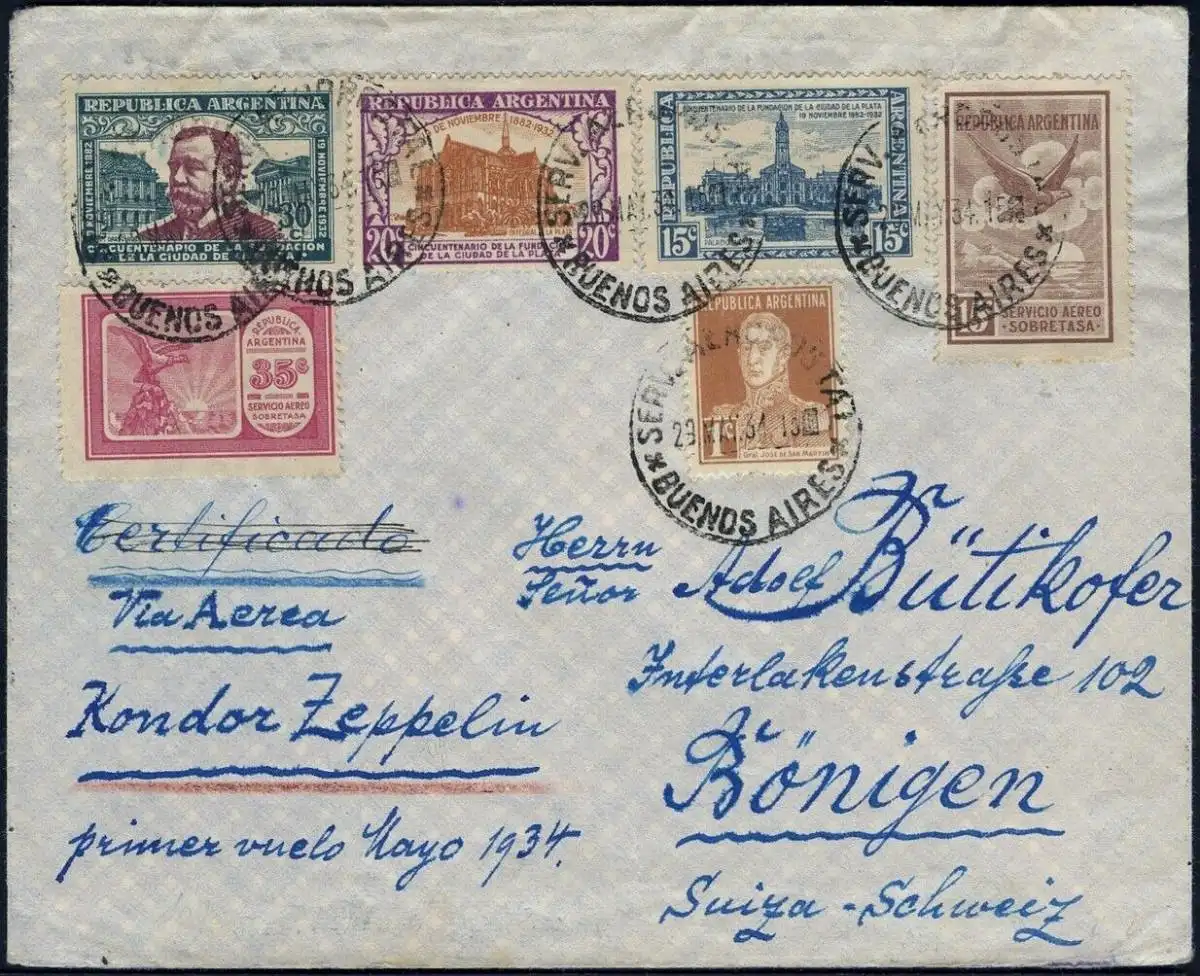 REPUBLICA ARGENTINA
19 NOVIEMBRE 1882
19 NOVIEMBRE 1932
30
CINCUENTENARIO DE LA FUNDACION
DE LA CIUDAD DE
REPUBLICA ARGENTINA
DE NOVIEMBRE 1882-1932
20c 20c
CINCUENTENARIO DE LA FUNDA
DE LA CIUDAD DE LA PLATA
CINCUENTENARIO DE LA FUNDACION DE LA CIUDAD DE LA PLATA
19 NOVIEMBRE 1882-1932
REPUBLICA
ARGENTINA
15c 15c
REPUBLICA ARGENTINA
15
SERVICIO AEREO
SOBRETASA
BUENOS AIRES
BUENOS AIRES
SERV.
BUENOS AIRES
SERV.
MAY.34.15
BUENOS AIRES
REPUBLICA
ARGENTINA
35c
SERVICIO AEREO
SOBRETASA
REPUBLICA ARGENTINA
1c
Gral. JOSE DE SAN MARTIN
29 MAY.34
BUENOS AIRES
Certificado
Via Aerea
Kondor Zeppelin
primer vuelo Mayo 1934.
Herrn
Señor Adolf Bütikofer
Interlakenstraße 102
Bönigen
Suiza - Schweiz